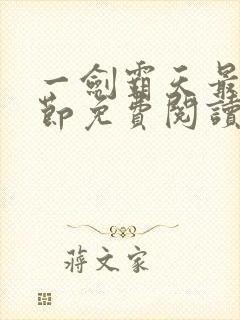 一劍霸天最
節免費閱讀
蔣文家